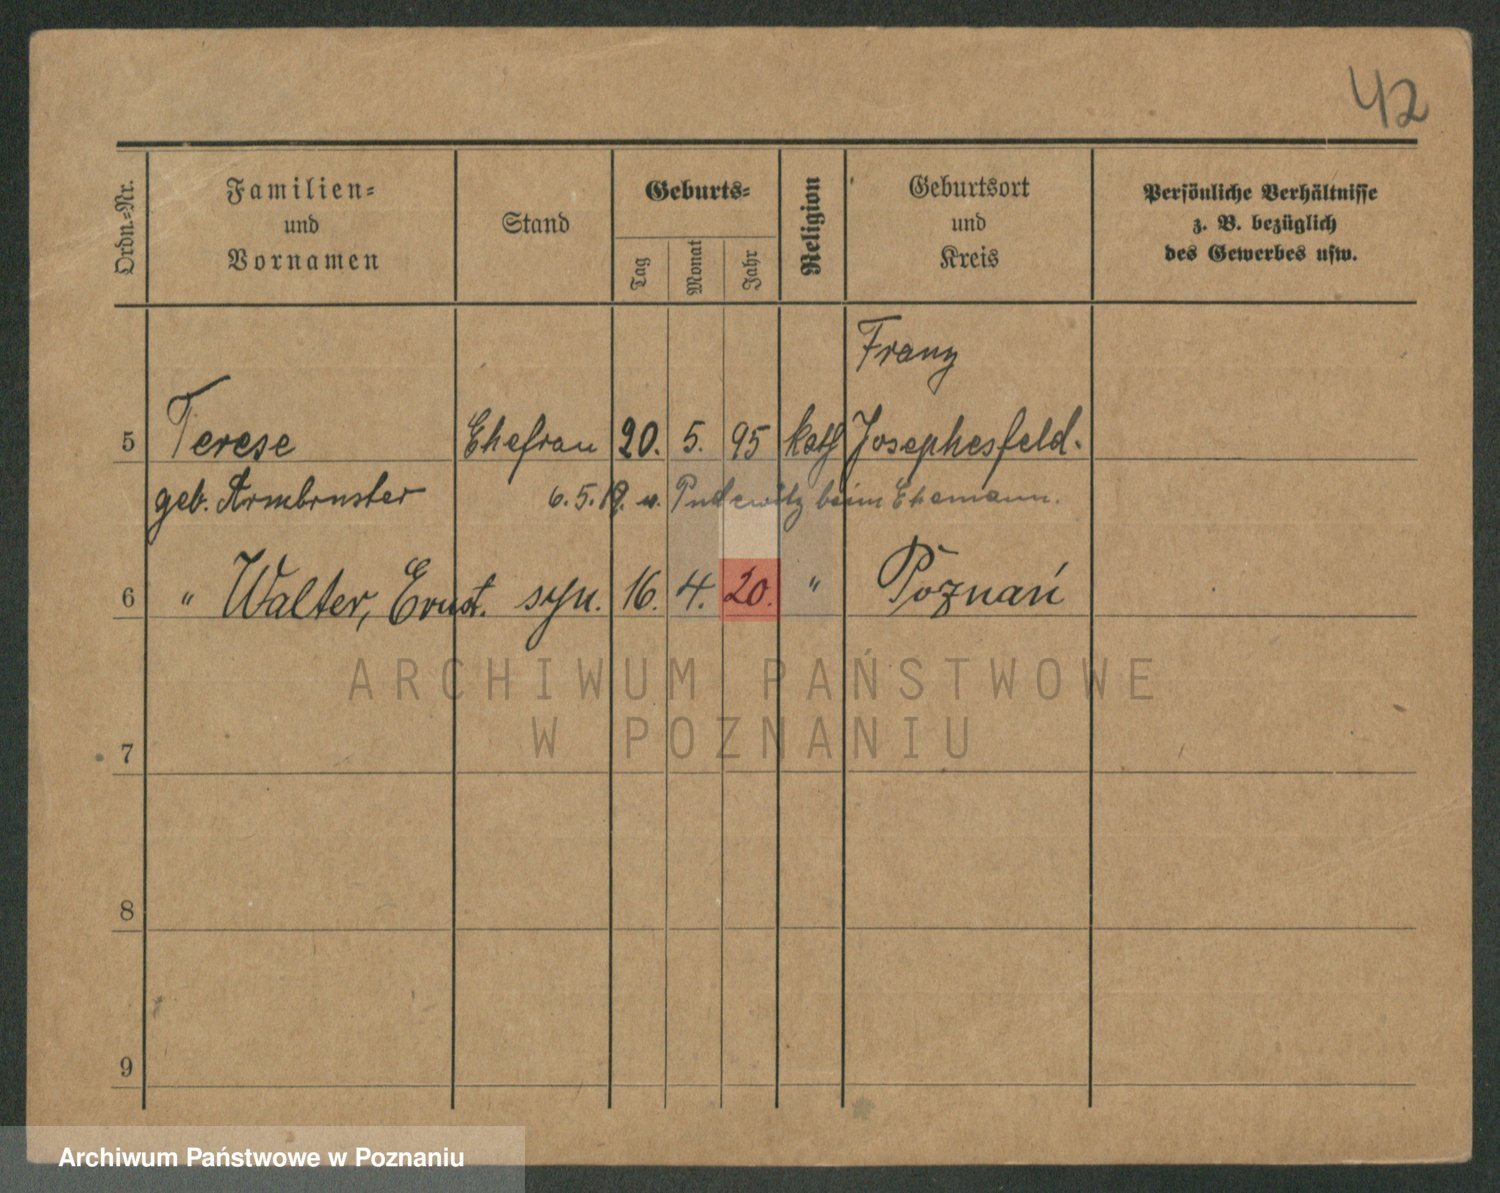 42
Ordn.-Nr.
Familien-
und
Vornamen
Stand
Geburts-
Tag
Monat
Jahr
Religion
Geburtsort
und
Kreis
Persönliche Verhältnisse
z. B. bezüglich
des Gewerbes usw.
Franz
5 Terese Ehefrau 20. 5. 95 kath Josephesfeld.
geb. Armbruster 6.5.19. n. Pudewitz beim Ehemann.
6 " Walter, Ernst. syn. 16. 4. 20. " Poznań
ARCHIWUM PAŃSTWOWE
W POZNANIU
7
8
9
Archiwum Państwowe w Poznaniu